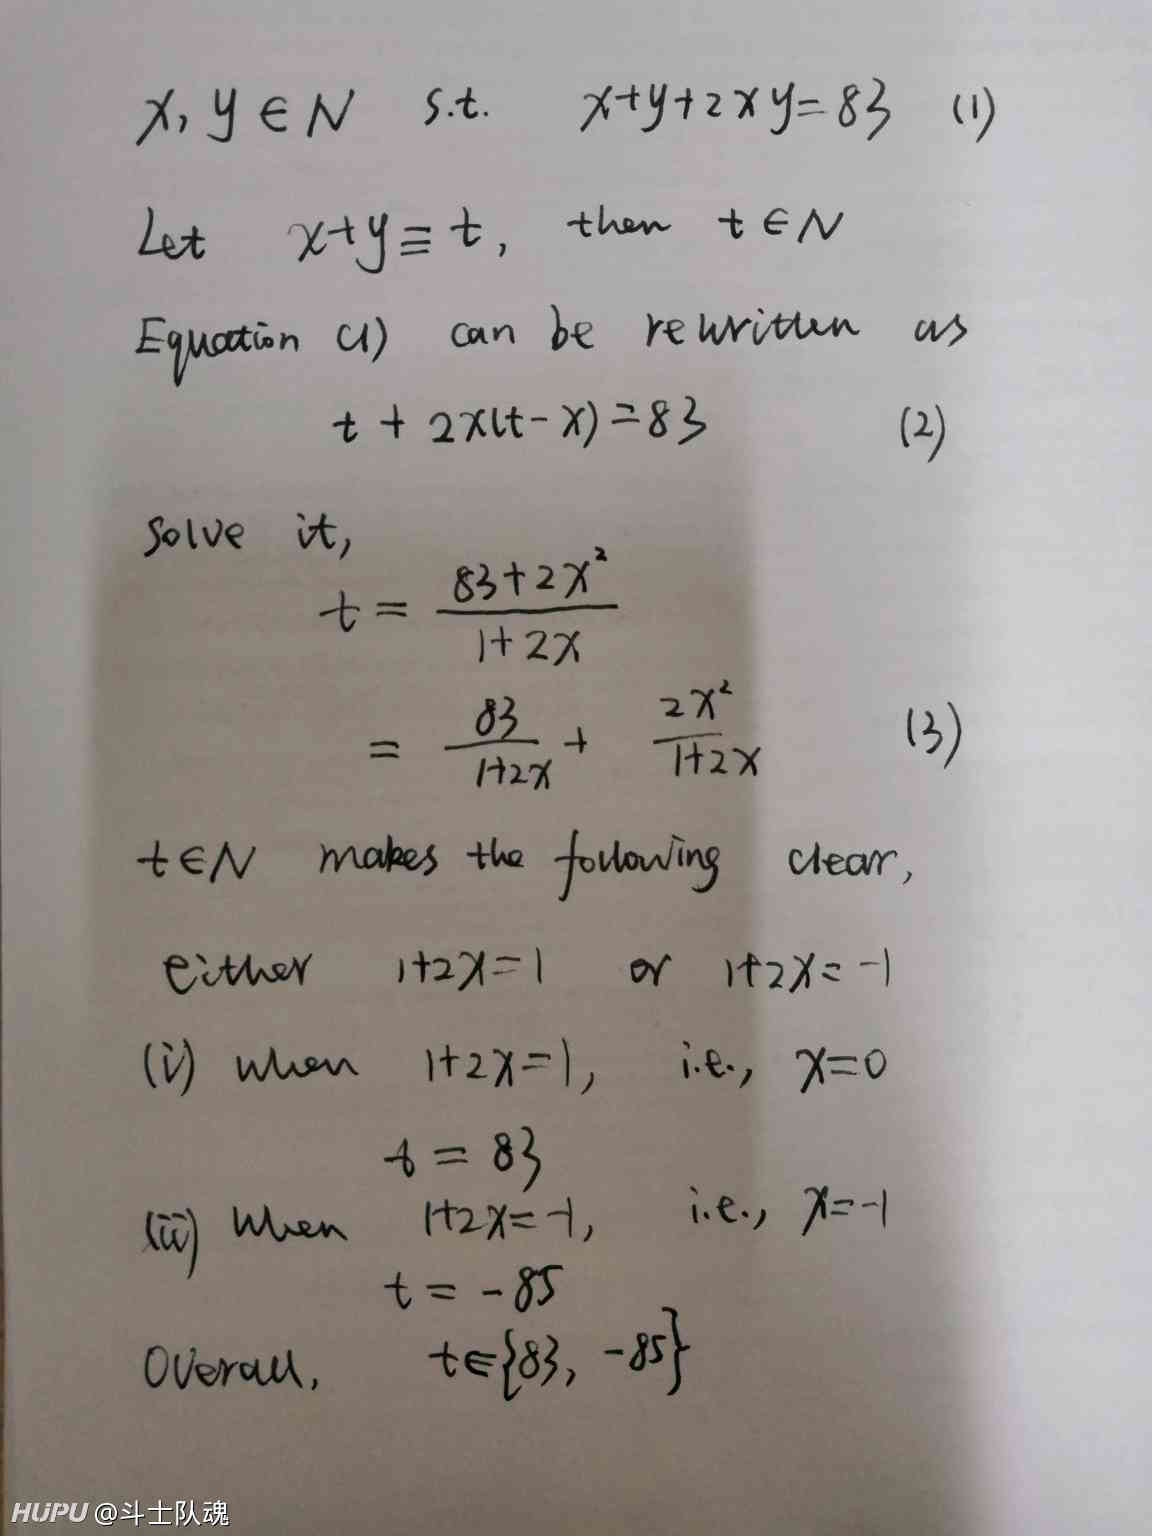 x, y ∈ N s.t. x+y+2xy=83 (1)
Let x+y≡t, then t∈N
Equation (1) can be rewritten as
t + 2x(t-x)=83 (2)
Solve it,
t = (83+2x²)/(1+2x)
= 83/(1+2x) + 2x²/(1+2x) (3)
t∈N makes the following clear,
either 1+2x=1 or 1+2x=-1
(i) when 1+2x=1, i.e., x=0
t = 83
(ii) when 1+2x=-1, i.e., x=-1
t = -85
Overall, t∈{83, -85}
HUPU @斗士队魂